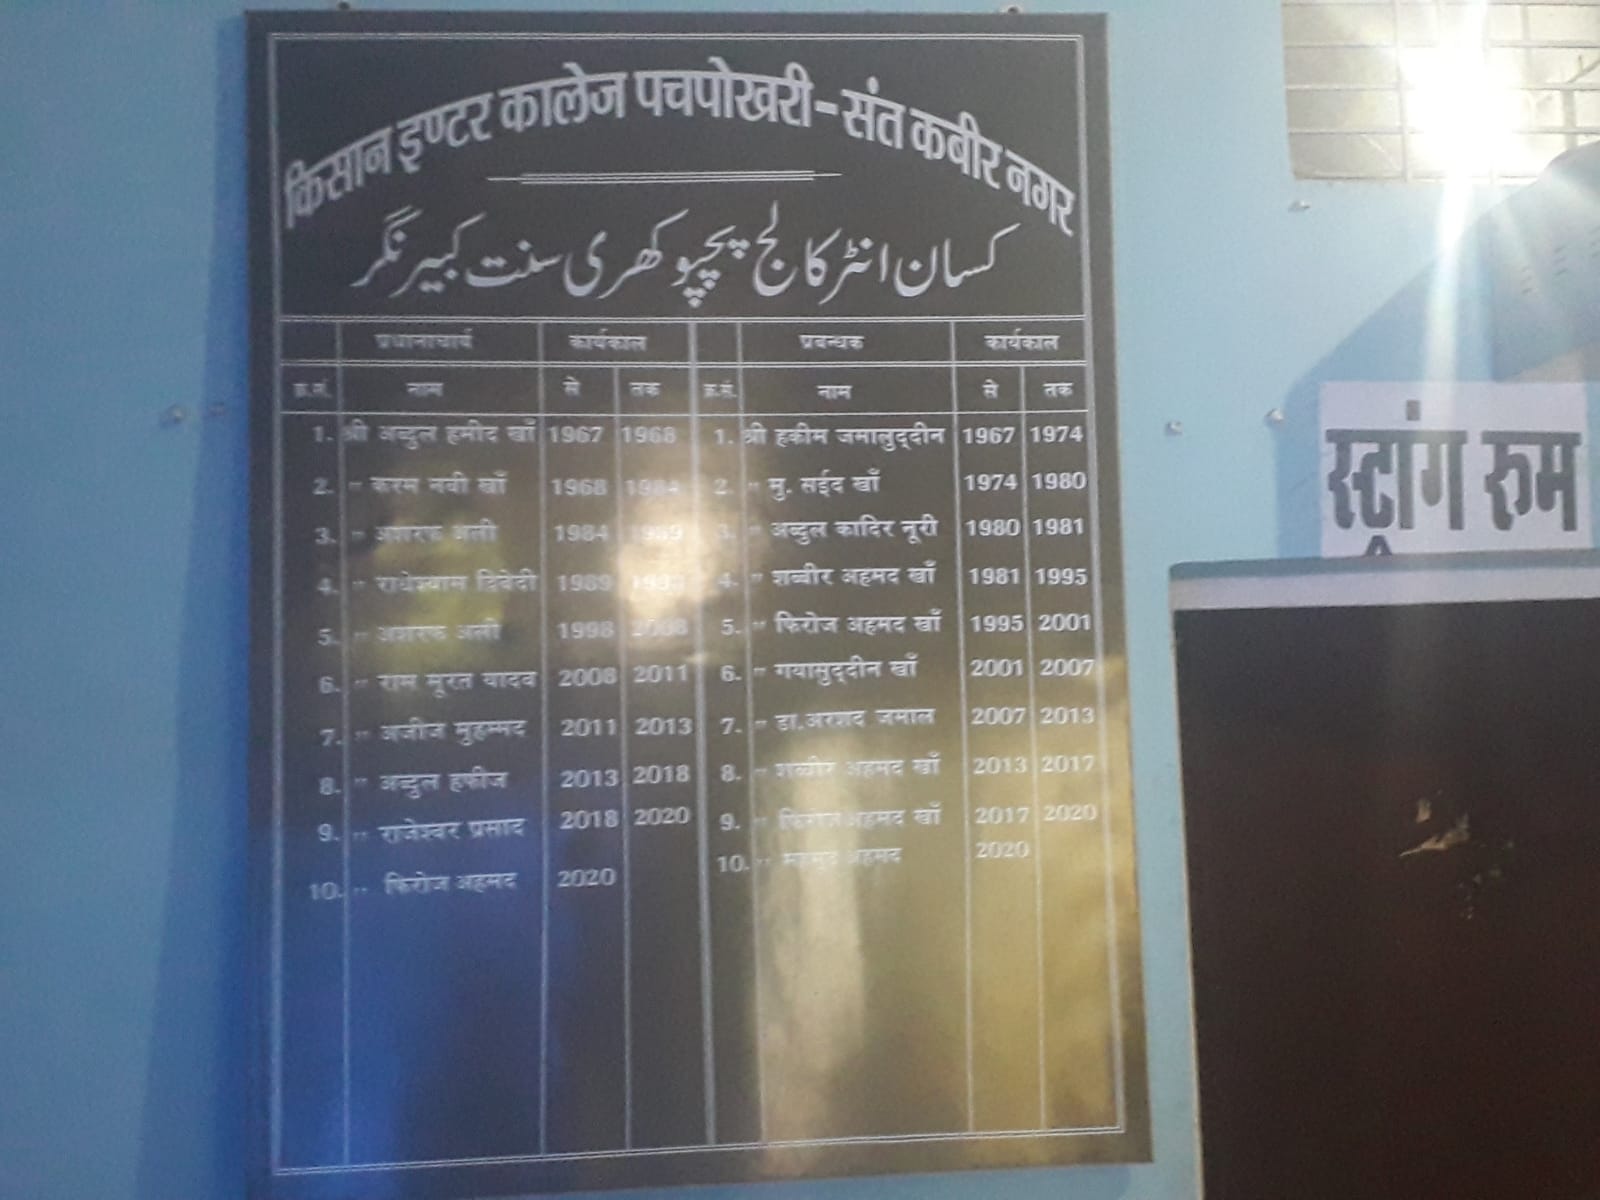 किसान इण्टर कालेज पचपोखरी-संत कबीर नगर
کسان انٹر کالج پچپوکھری سنت کبیر نگر
प्रधानाचार्य कार्यकाल प्रबन्धक कार्यकाल
क्र.सं. नाम से तक क्र.सं. नाम से तक
1. श्री अब्दुल हमीद खाँ 1967 1968 1. श्री हकीम जमालुद्दीन 1967 1974
2. " करम नबी खाँ 1968 1984 2. " मु. सईद खाँ 1974 1980
3. " अशरफ अली 1984 1989 3. " अब्दुल कादिर नूरी 1980 1981
4. " राधेश्याम द्विवेदी 1989 4. " शब्बीर अहमद खाँ 1981 1995
5. " अशरफ अली 1998 2008 5. " फिरोज अहमद खाँ 1995 2001
6. " राम मूरत यादव 2008 2011 6. " गयासुद्दीन खाँ 2001 2007
7. " अजीज मुहम्मद 2011 2013 7. " डा.अरशद जमाल 2007 2013
8. " अब्दुल हफीज 2013 2018 8. " शब्बीर अहमद खाँ 2013 2017
9. " राजेश्वर प्रसाद 2018 2020 9. " फिरोज अहमद खाँ 2017 2020
10. " फिरोज अहमद 2020 10. " अहमद 2020
स्ट्रांग रूम